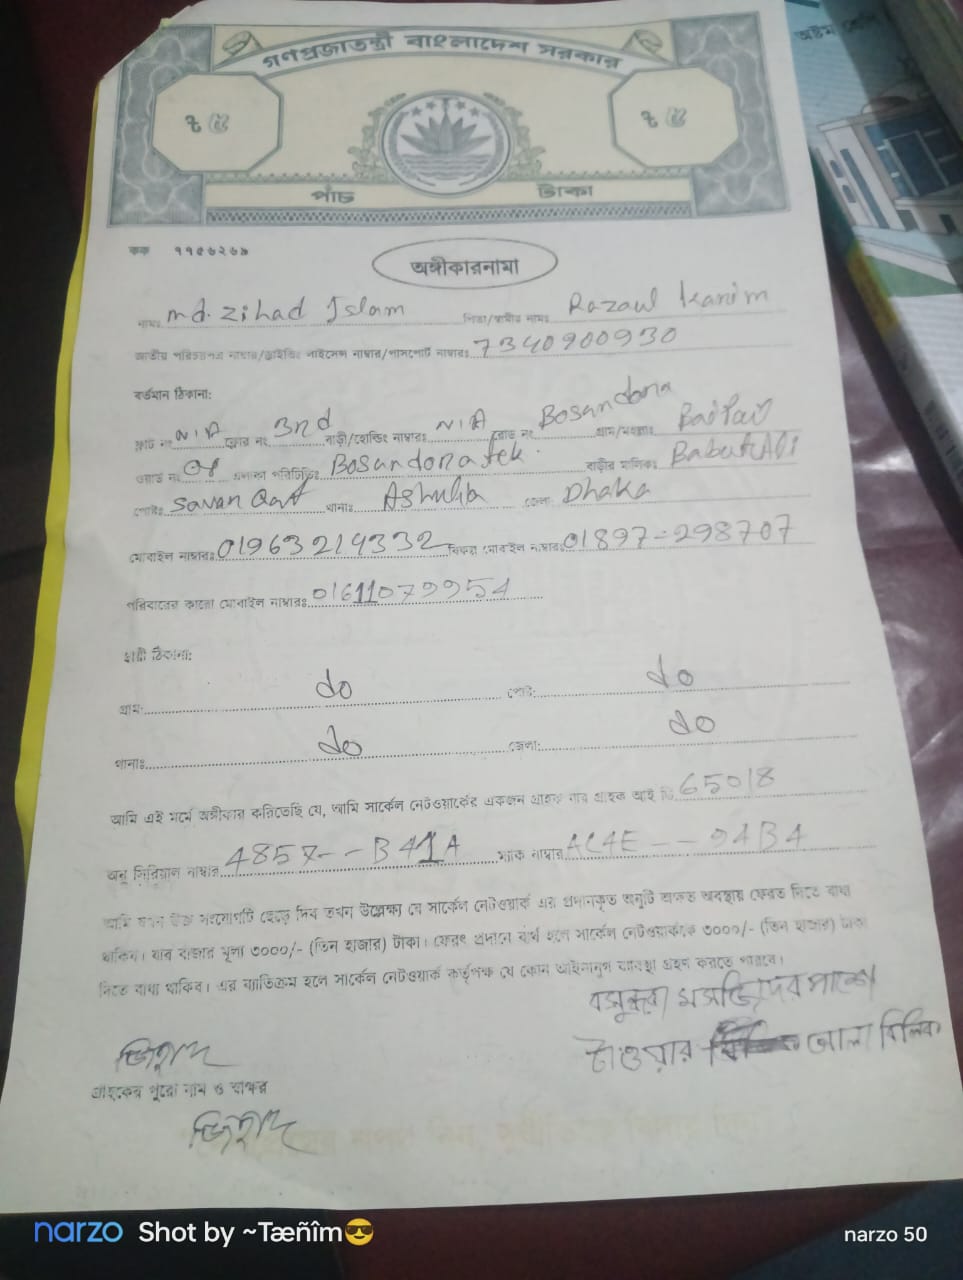 গণপ্রজাতন্ত্রী বাংলাদেশ সরকার
৳ ৫ ৳ ৫
পাঁচ টাকা
কক ৭৭৫৬২৬৯
অঙ্গীকারনামা
নামঃ md. Zihad Islam পিতা/স্বামীর নামঃ Razaul karim
জাতীয় পরিচয়পত্র নাম্বার/ড্রাইভিং লাইসেন্স নাম্বার/পাসপোর্ট নাম্বারঃ 7340900930
বর্তমান ঠিকানা:
ফ্লাট নং N/A ফ্লোর নং 3nd বাড়ী/হোল্ডিং নাম্বারঃ N/A রোড নং Bosundora গ্রাম/মহল্লাঃ
ওয়ার্ড নং এলাকা পরিচিতিঃ Bosundora tek. বাড়ীর মালিকঃ Babul
পোষ্টঃ Savar থানাঃ Ashulia জেলা Dhaka
মোবাইল নাম্বারঃ 01963214332 বিকল্প মোবাইল নাম্বারঃ 01897-298707
পরিবারের কারো মোবাইল নাম্বারঃ 01611079954
স্থায়ী ঠিকানা:
গ্রাম: do পোষ্ট: do
থানাঃ do জেলা: do
আমি এই মর্মে অঙ্গীকার করিতেছি যে, আমি সার্কেল নেটওয়ার্কের একজন গ্রাহক যার গ্রাহক আই ডি 65018
অনু সিরিয়াল নাম্বার 485X--B41A ম্যাক নাম্বার AC4E--94B4
আমি যখন উক্ত সংযোগটি ছেড়ে দিব তখন উল্লেক্ষ্য যে সার্কেল নেটওয়ার্ক এর প্রদানকৃত অনুটি অক্ষত অবস্থায় ফেরত দিতে বাধ্য
থাকিব। যার বাজার মূল্য ৩০০০/- (তিন হাজার) টাকা। ফেরৎ প্রদানে ব্যর্থ হলে সার্কেল নেটওয়ার্ককে ৩০০০/- (তিন হাজার) টাকা
দিতে বাধ্য থাকিব। এর ব্যাতিক্রম হলে সার্কেল নেটওয়ার্ক কর্তৃপক্ষ যে কোন আইনানুগ ব্যবস্থা গ্রহন করতে পারবে।
বসুন্ধরা মসজিদের পাশে
টাওয়ার আলা বিল্ডিং
জিহাদ
গ্রাহকের পুরো নাম ও স্বাক্ষর
জিহাদ
narzo Shot by ~Tæñîm😎 narzo 50